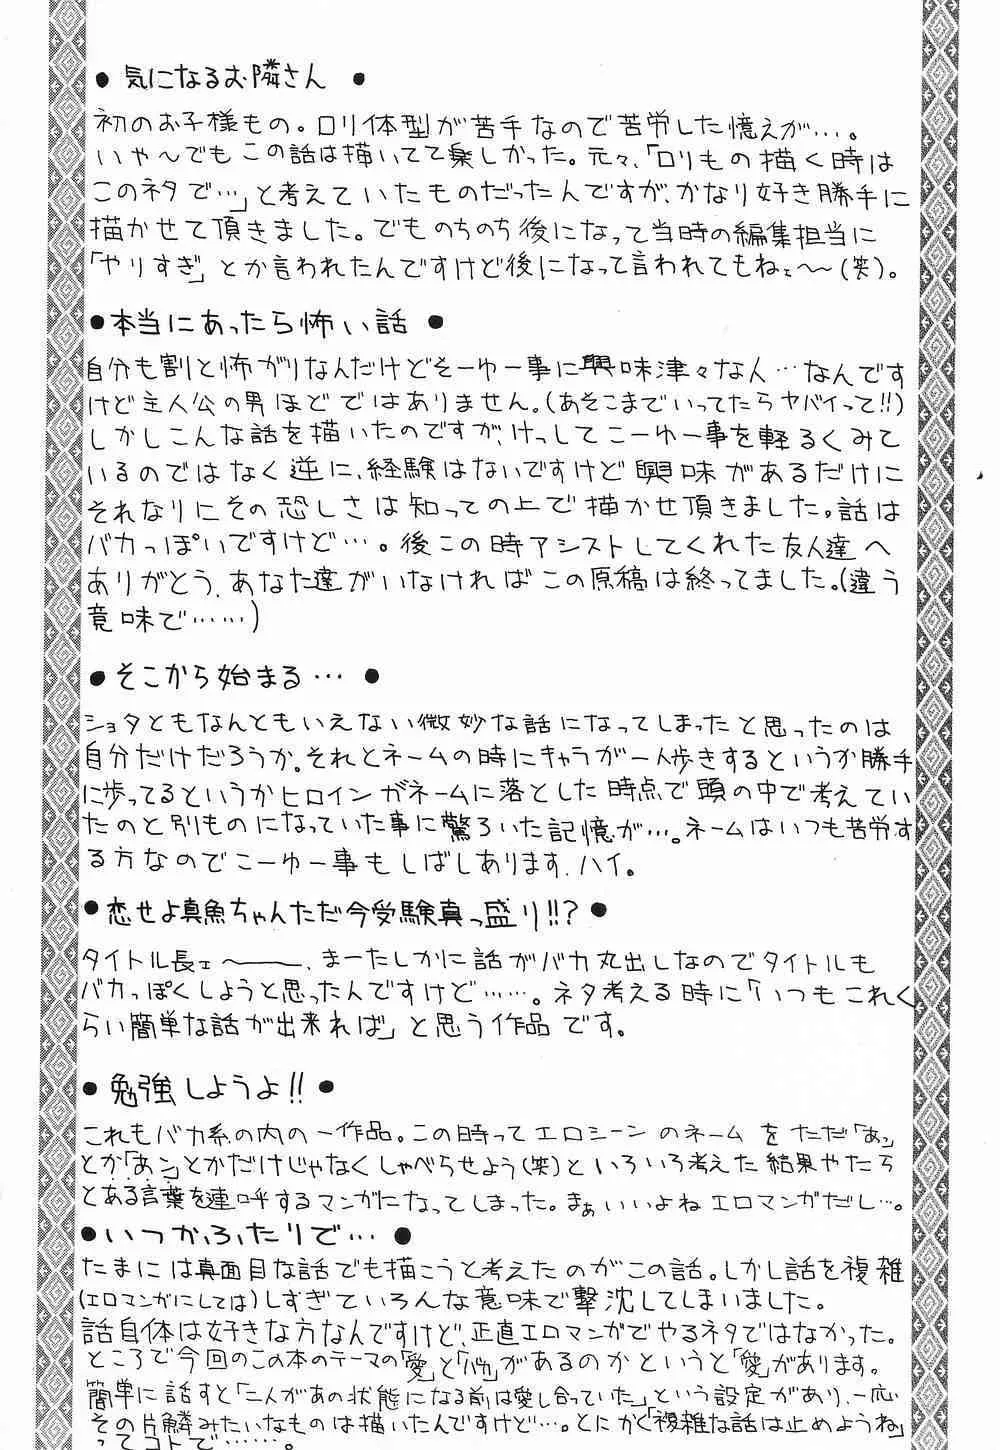 ● 気になるお隣さん ●
初のお子様もの。ロリ体型が苦手なので苦労した憶えが…。
いや〜でもこの話は描いてて楽しかった。元々、「ロリもの描く時は
このネタで…」と考えていたものだったんですが、かなり好き勝手に
描かせて頂きました。でものちのち後になって当時の編集担当に
「やりすぎ」とか言われたんですけど後になって言われてもねェ〜(笑)。
●本当にあったら怖い話 ●
自分も割と怖がりなんだけどそーゆー事に興味津々な人…なんです
けど主人公の男ほどではありません。(あそこまでいってたらヤバイって!!)
しかしこんな話を描いたのですが、けっしてこーゆー事を軽るくみて
いるのではなく逆に、経験はないですけど興味があるだけに
それなりにその恐しさは知っての上で描かせ頂きました。話は
バカっぽいですけど…。後この時アシストしてくれた友人達へ
ありがとう、あなた達がいなければこの原稿は終ってました。(違う
意味で……)
●そこから始まる… ●
ショタともなんともいえない微妙な話になってしまったと思ったのは
自分だけだろうか。それとネームの時にキャラが一人歩きするというか勝手
に歩ってるというかヒロインがネームに落とした時点で頭の中で考えてい
たのと別ものになっていた事に驚ろいた記憶が…。ネームはいつも苦労す
る方なのでこーゆー事もしばしあります、ハイ。
●恋せよ真魚ちゃんただ今受験真っ盛り!!? ●
タイトル長ェ〜――、まーたしかに話がバカ丸出しなのでタイトルも
バカっぽくしようと思ったんですけど……。ネタ考える時に「いつもこれく
らい簡単な話が出来れば」と思う作品です。
●勉強しようよ!! ●
これもバカ系の内の一作品。この時ってエロシーンのネームをただ「あッ」
とか「あン」とかだけじゃなくしゃべらせよう(笑)といろいろ考えた結果やたら
とある言葉を連呼するマンガになってしまった。まぁいいよねエロマンガだし…。
●いつかふたりで… ●
たまには真面目な話でも描こうと考えたのがこの話。しかし話を複雑
(エロマンガにしては)しすぎていろんな意味で撃沈してしまいました。
話自体は好きな方なんですけど、正直エロマンガでやるネタではなかった。
ところで今回のこの本のテーマの「愛」と「」があるのかというと「愛」があります。
簡単に話すと「二人があの状態になる前は愛し合っていた」という設定があり、一応
その片鱗みたいなものは描いたんですけど…。とにかく「複雑な話は止めようね」
ってコトで……。